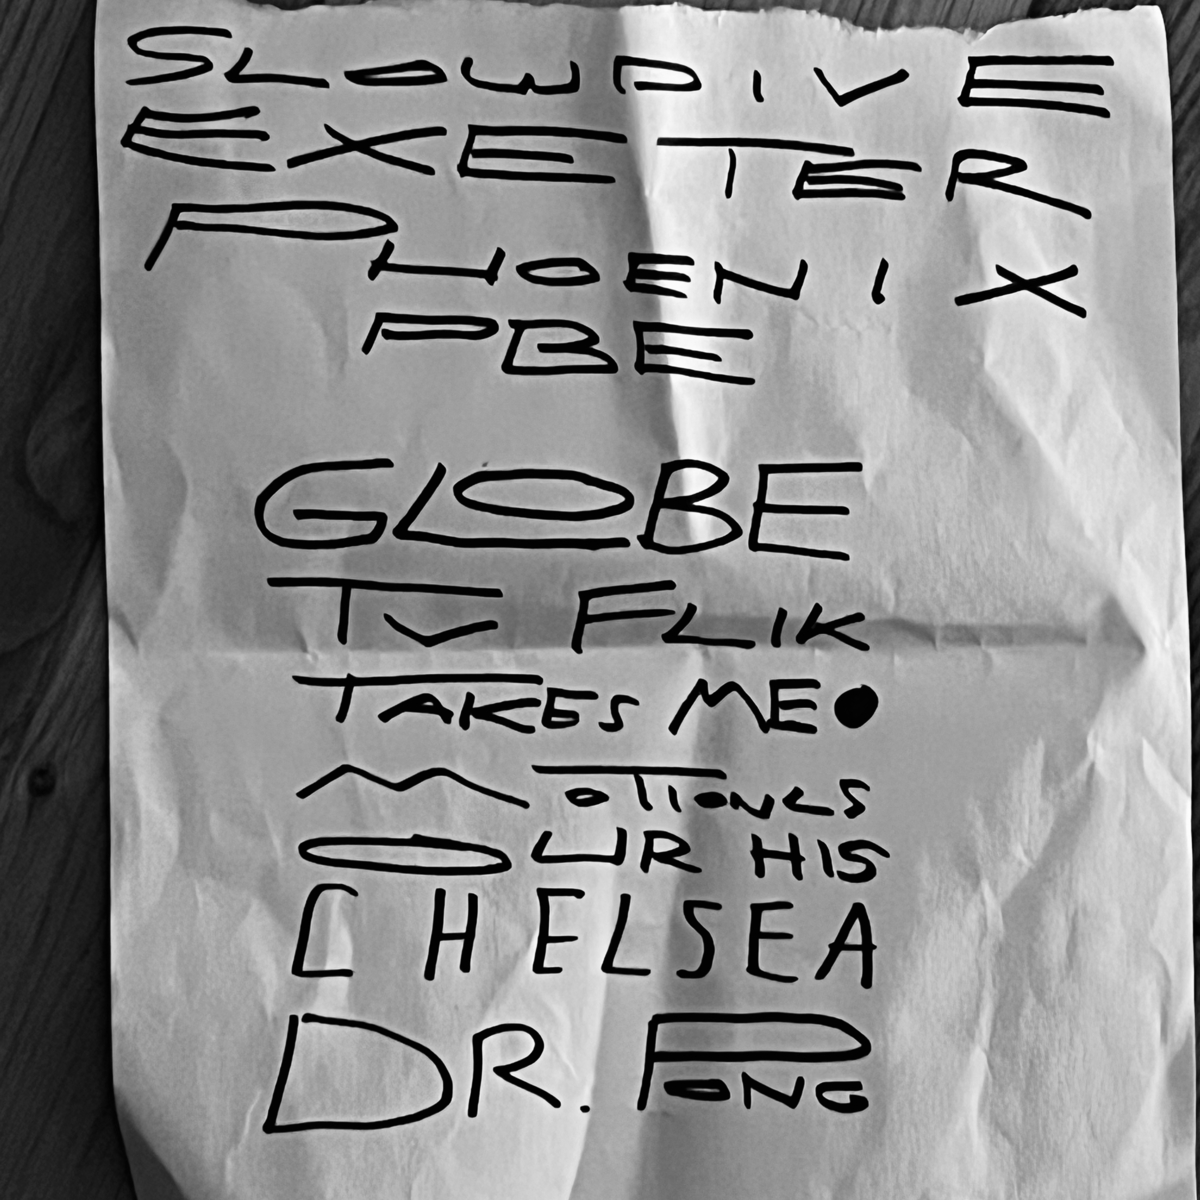 SLOWDIVE
EXETER
PHOENIX
PBE
GLOBE
TV FLIK
TAKES ME●
MOTIONLS
OUR HIS
CHELSEA
DR. PONG